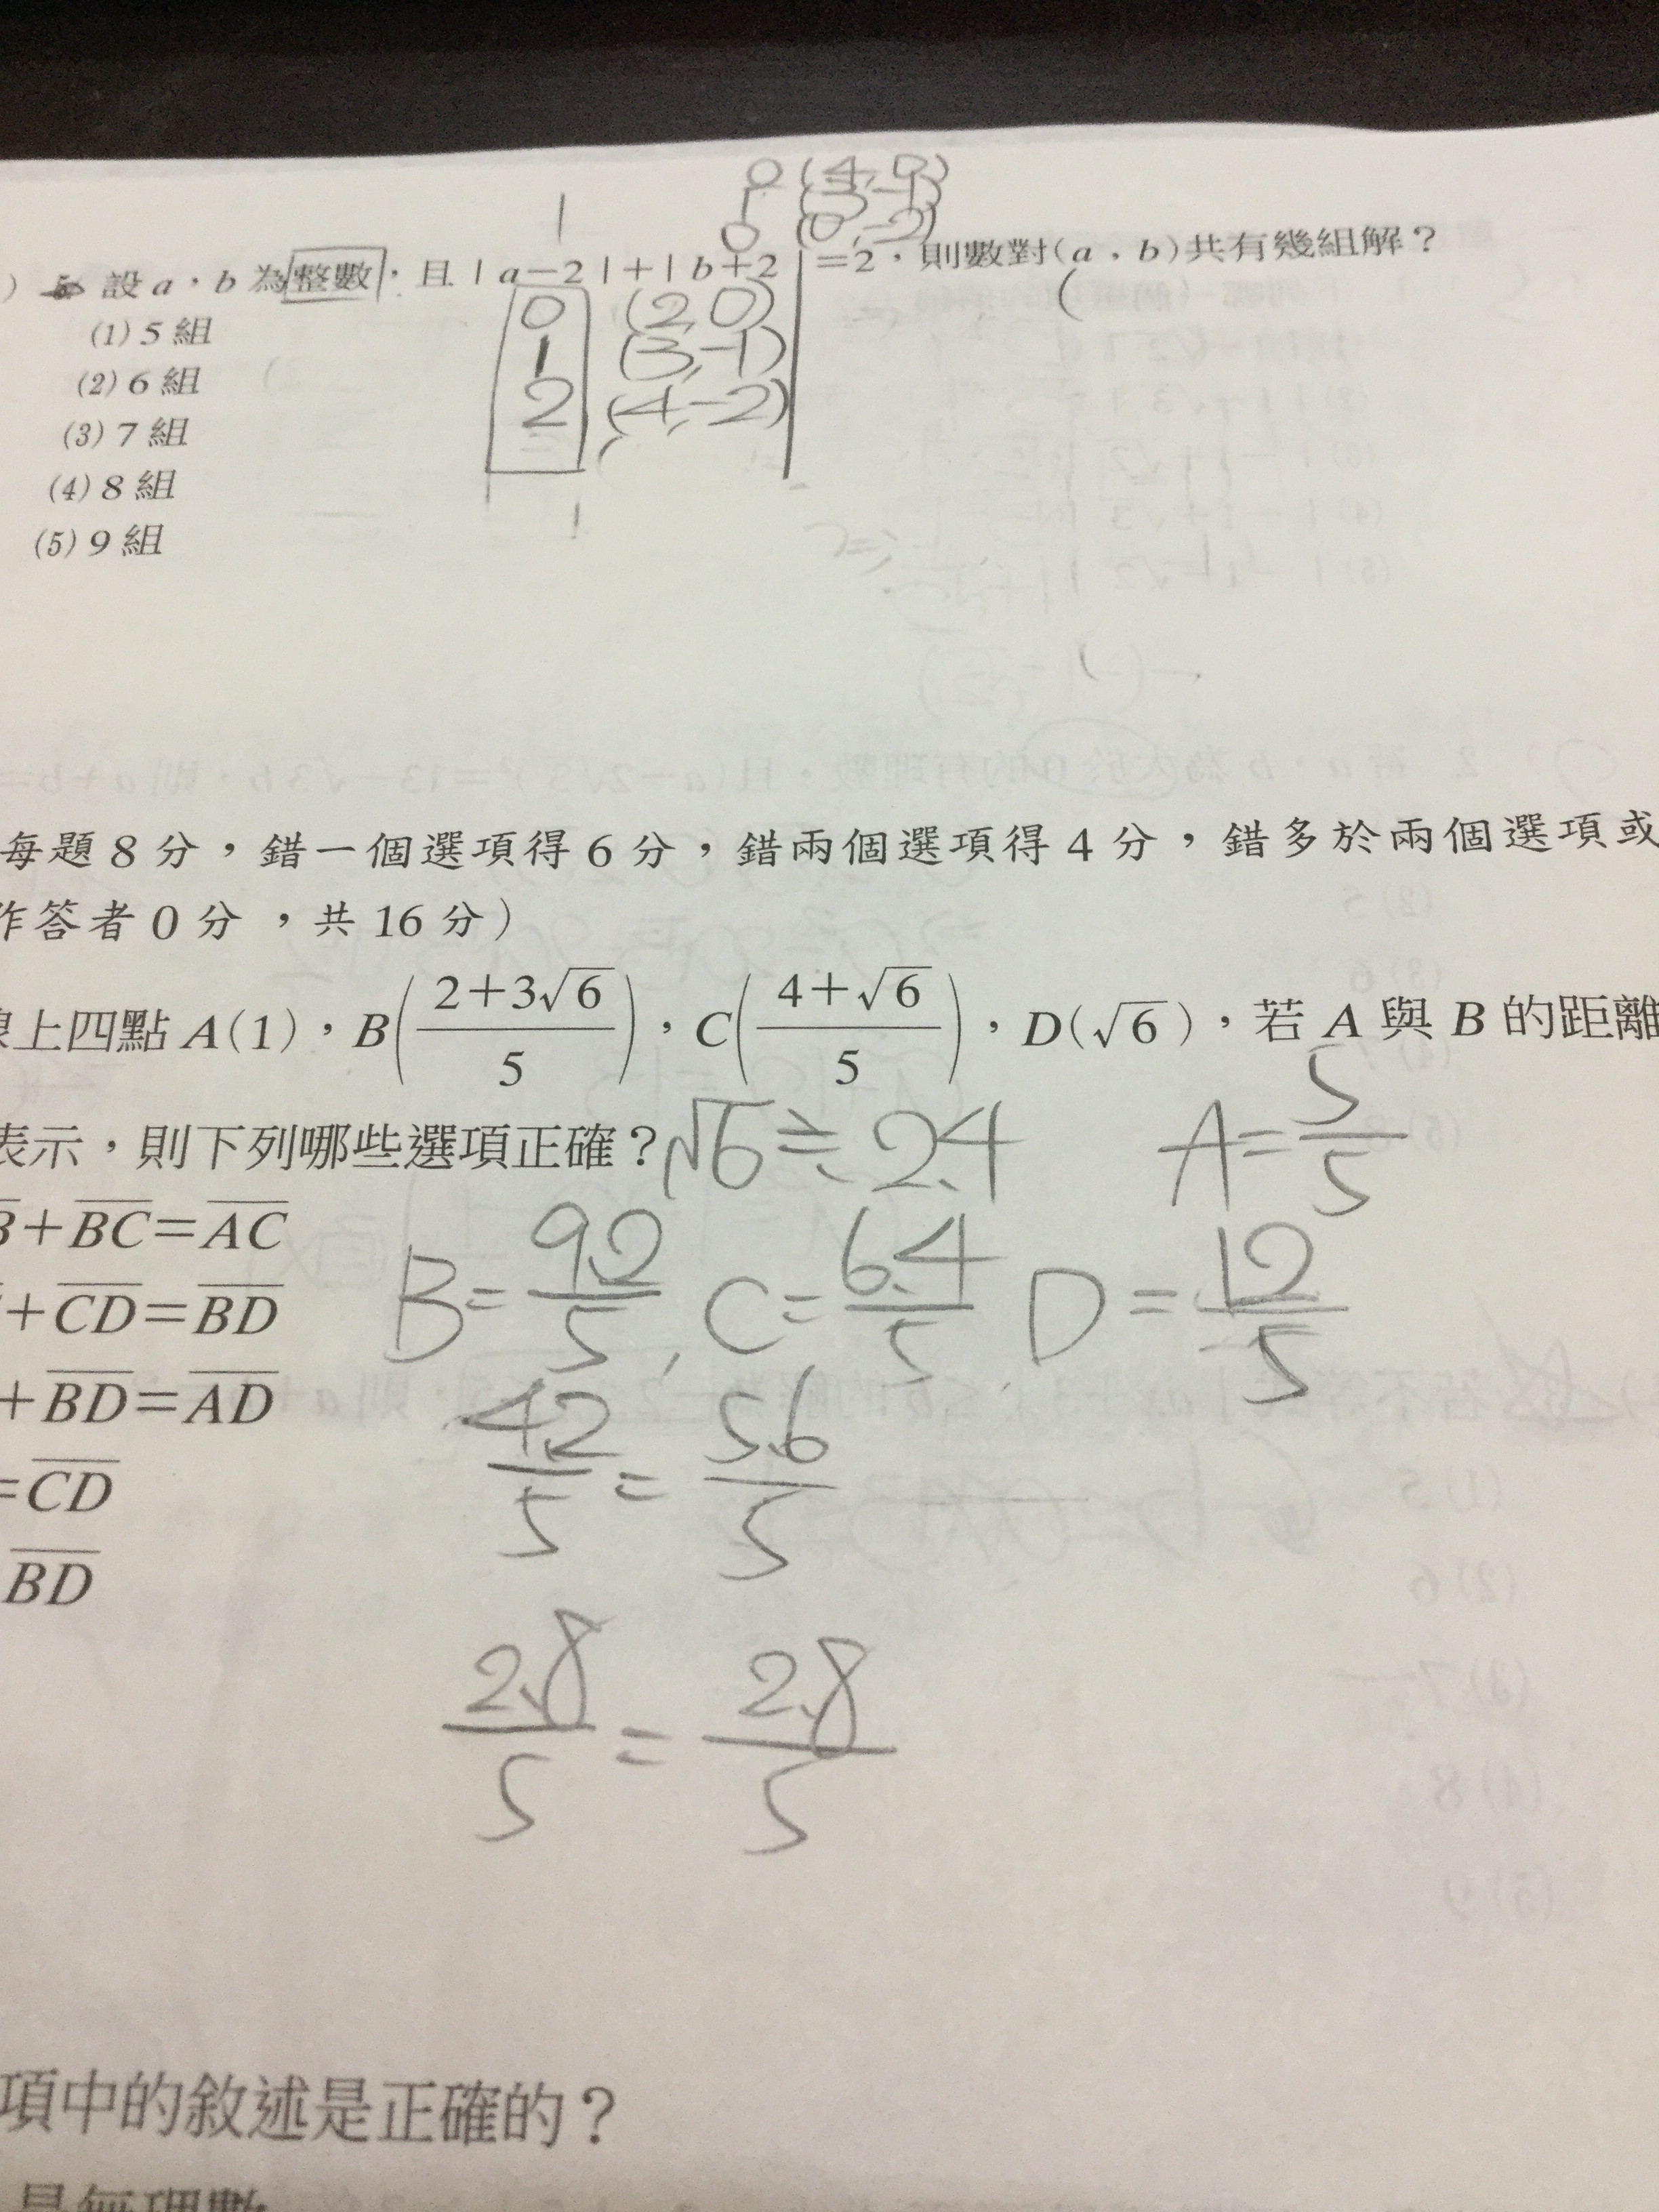 0 (4,0)
1 (3,-1)
0 (0,-2)
1
設 a，b 為整數，且 | a−2 |+| b+2 |=2，則數對(a，b)共有幾組解？
(1) 5 組
(2) 6 組
(3) 7 組
(4) 8 組
(5) 9 組
0 (2,0)
1 (3,-1)
2 (4,-2)
每題 8 分，錯一個選項得 6 分，錯兩個選項得 4 分，錯多於兩個選項或
作答者 0 分，共 16 分）
線上四點 A(1)，B((2+3√6)/5)，C((4+√6)/5)，D(√6)，若 A 與 B 的距離
表示，則下列哪些選項正確？
√6≒2.4 A=5/5
B+BC=AC
B=9.2/5, C=6.4/5 D=12/5
+CD=BD
+BD=AD
4.2/5=5.6/5
=CD
BD
2.8/5=2.8/5
項中的敘述是正確的？
是無理數